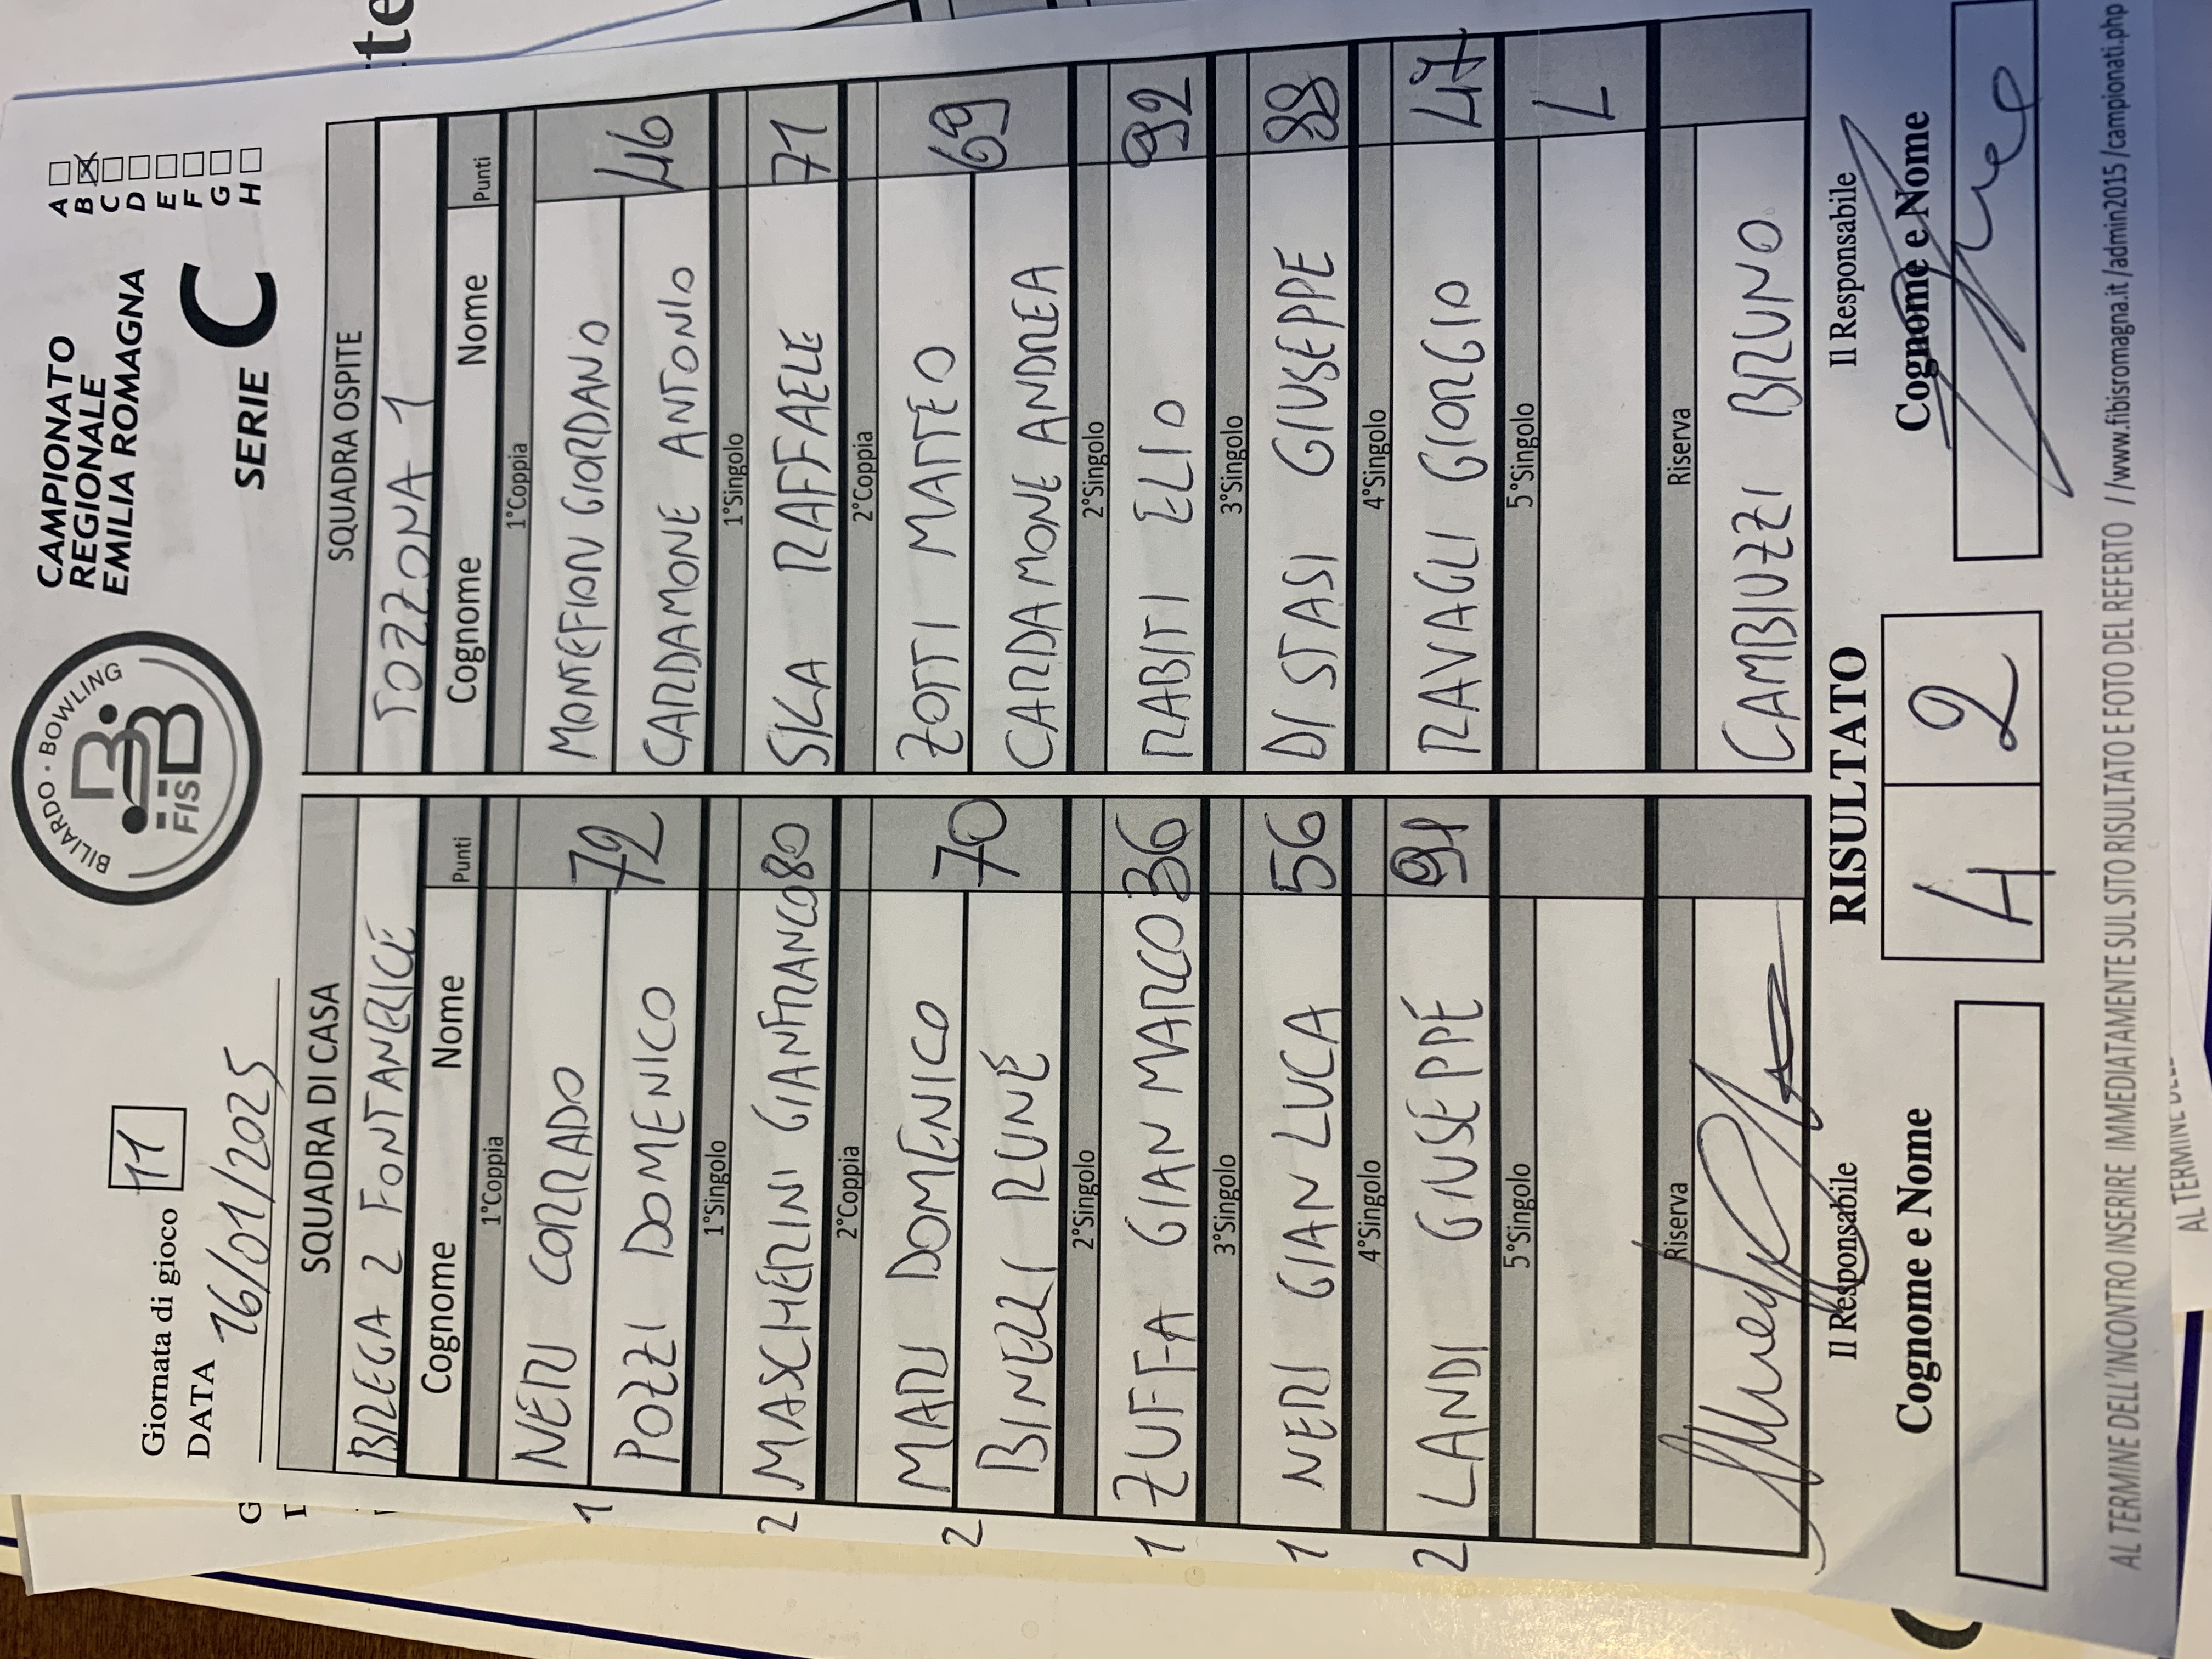 Giornata di gioco 11
DATA 16/01/2025
BILIARDO · BOWLING
FISBB
CAMPIONATO
REGIONALE
EMILIA ROMAGNA
SERIE C
A
B X
C
D
E
F
G
H
SQUADRA DI CASA
BREGA 2 FONTANELICE
Cognome Nome Punti
1°Coppia
1 NERI CORRADO
POZZI DOMENICO 72
1°Singolo
2 MASCHERINI GIANFRANCO 80
2°Coppia
2 MARI DOMENICO
BINELLI RUNE 70
2°Singolo
1 ZUFFA GIAN MARCO 36
3°Singolo
1 NERI GIAN LUCA 56
4°Singolo
2 LANDI GIUSEPPE 91
5°Singolo
Riserva
Il Responsabile
Cognome e Nome
SQUADRA OSPITE
TOZZONA 1
Cognome Nome Punti
1°Coppia
MONTEFIORI GIORDANO
CARDAMONE ANTONIO 46
1°Singolo
SICA RAFFAELE 71
2°Coppia
ZOTTI MATTEO
CARDAMONE ANDREA 69
2°Singolo
RABITI ELIO 92
3°Singolo
DI STASI GIUSEPPE 88
4°Singolo
RAVAGLI GIORGIO 47
5°Singolo
Riserva
CAMBIUZZI BRUNO
RISULTATO
4 2
Il Responsabile
Cognome e Nome
AL TERMINE DELL'INCONTRO INSERIRE IMMEDIATAMENTE SUL SITO RISULTATO E FOTO DEL REFERTO //www.fibisromagna.it/admin2015/campionati.php
AL TERMINE